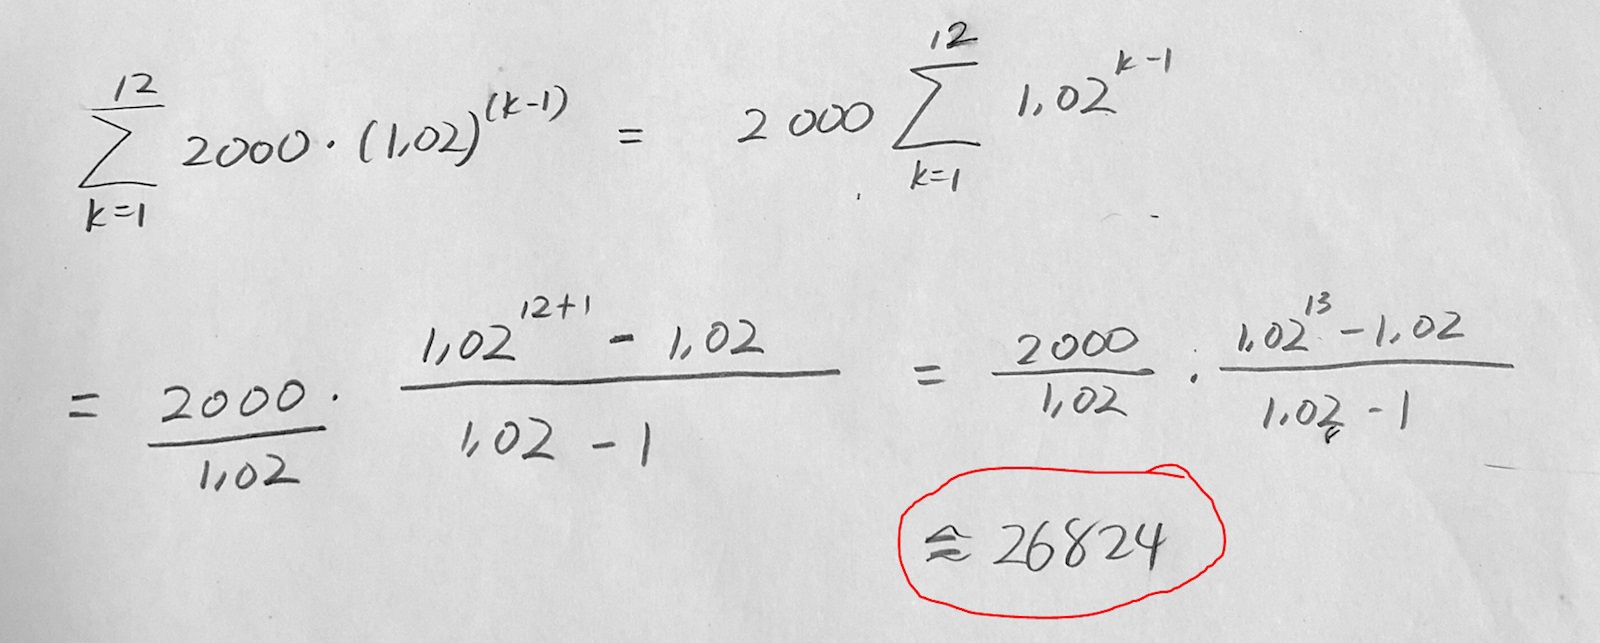 \sum_{k=1}^{12} 2000 \cdot (1,02)^{(k-1)} = 2000 \sum_{k=1}^{12} 1,02^{k-1}
= \frac{2000}{1,02} \cdot \frac{1,02^{12+1} - 1,02}{1,02 - 1} = \frac{2000}{1,02} \cdot \frac{1,02^{13} - 1,02}{1,02 - 1}
≈ 26824